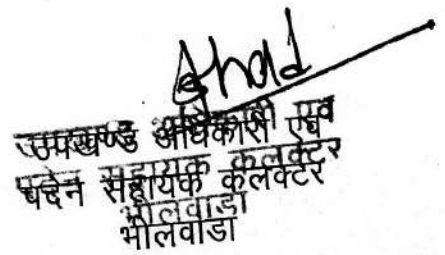 उपखण्ड अधिकारी एवं
पदेन सहायक कलेक्टर
भीलवाडा